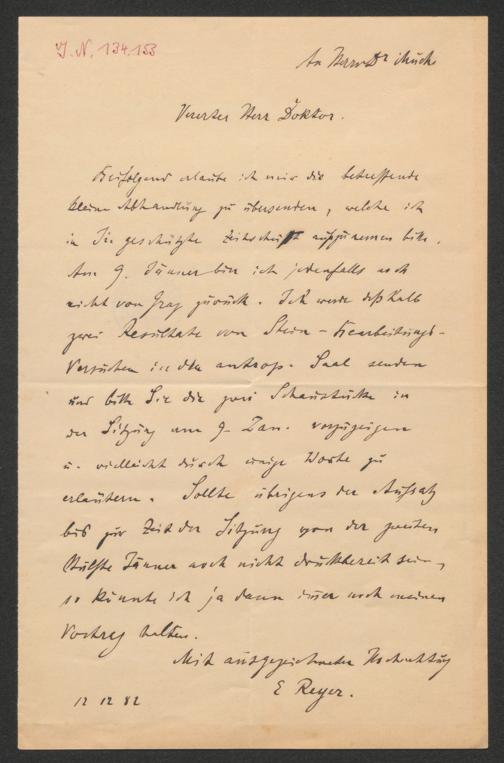 J. N. 134.153
An Herrn Dr Much
Vererter Herr Doktor.
Beifolgend erlaube ich mir die betreffende
kleine Abhandlung zu übersenden, welche ich
in die geschätzte Zeitschrift aufzunemen bitte.
Am 9. Jänner bin ich jedenfalls noch
nicht von Graz zurück. Ich werde deßhalb
zwei Resultate von Stein-Bearbeitungs-
Versuchen in den antrop. Saal senden
und bitte Sie die zwei Schaustücke in
der Sitzung am 9. Jan. vorzuzeigen
u. vielleicht durch einige Worte zu
erläutern. Sollte übrigens der Aufsatz
bis zur Zeit der Sitzung von der zweiten
Hälfte Jänner noch nicht druckbereit sein,
so könnte ich ja dann immer noch meinen
Vortrag halten.
Mit ausgezeichneter Hochachtung
E Reyer.
12 12 82